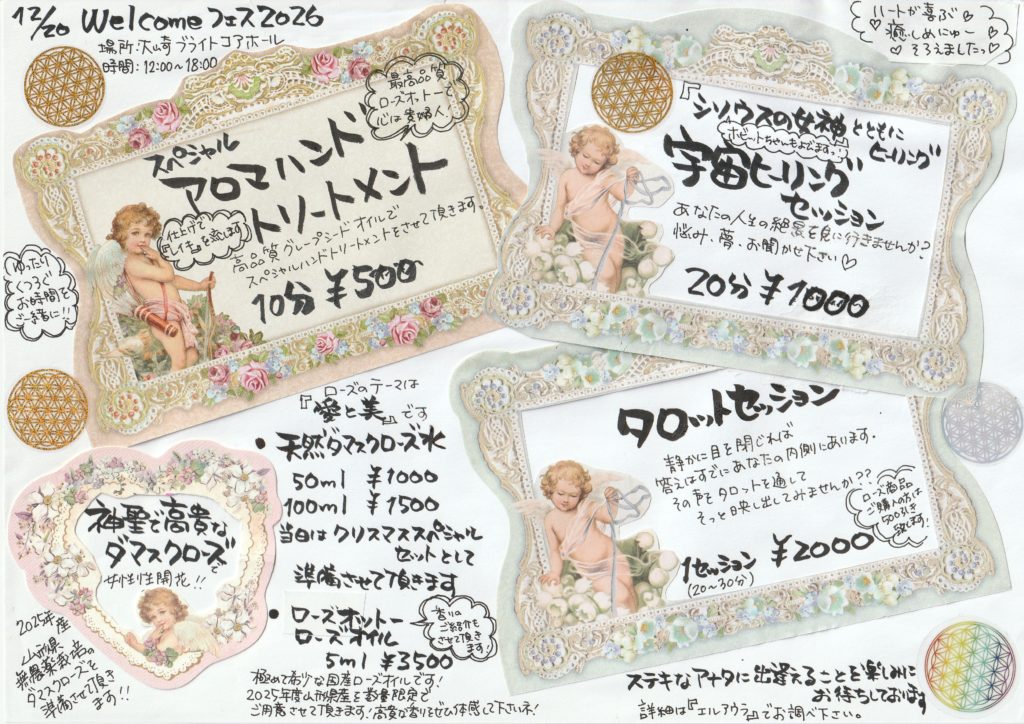 12/20 Welcomeフェス2026
場所:大崎ブライトコアホール
時間:12:00~18:00
ハートが喜ぶ
癒しめにゅー
そろえましたっ
最高品質
ローズオットーで
心は貴婦人!
スペシャル
アロマハンド
トリートメント
仕上げで
『レイキ』を流します
高品質グレープシードオイルで
スペシャルハンドトリートメントをさせて頂きます。
10分 ¥500
ゆったり
くつろぐ
お時間を
ご一緒に!!
『シリウスの女神』とともに
ヒーリング
ホビットちゃんもよびます!
宇宙ヒーリング
セッション
あなたの人生の絶景を見に行きませんか?
悩み、夢、お聞かせ下さい♡
20分 ¥1000
ローズのテーマは
『愛と美』です
・天然ダマスクローズ水
50ml ¥1000
100ml ¥1500
当日はクリスマススペシャル
セットとして
準備させて頂きます
・ローズオットー
ローズオイル
5ml ¥3500
香りの
ご紹介も
させて頂き
ます!
極めて希少な国産ローズオイルです!
2025年度山形県産を数量限定で
ご用意させて頂きます!高貴な香りをぜひ体感して下さいネ!
神聖で高貴な
ダマスクローズで
女性性開花!!
2025年産
山形県
無農薬栽培の
ダマスクローズを
準備させて頂き
ます!!
タロットセッション
静かに目を閉じれば
答えはすでにあなたの内側にあります。
その声をタロットを通して
そっと映し出してみませんか??
ローズ商品
ご購入の方は
500引き
致します!
1セッション ¥2000
(20~30分)
ステキなアナタに出逢えることを楽しみに
お待ちしております
詳細は『エルアウラ』でお調べ下さい。